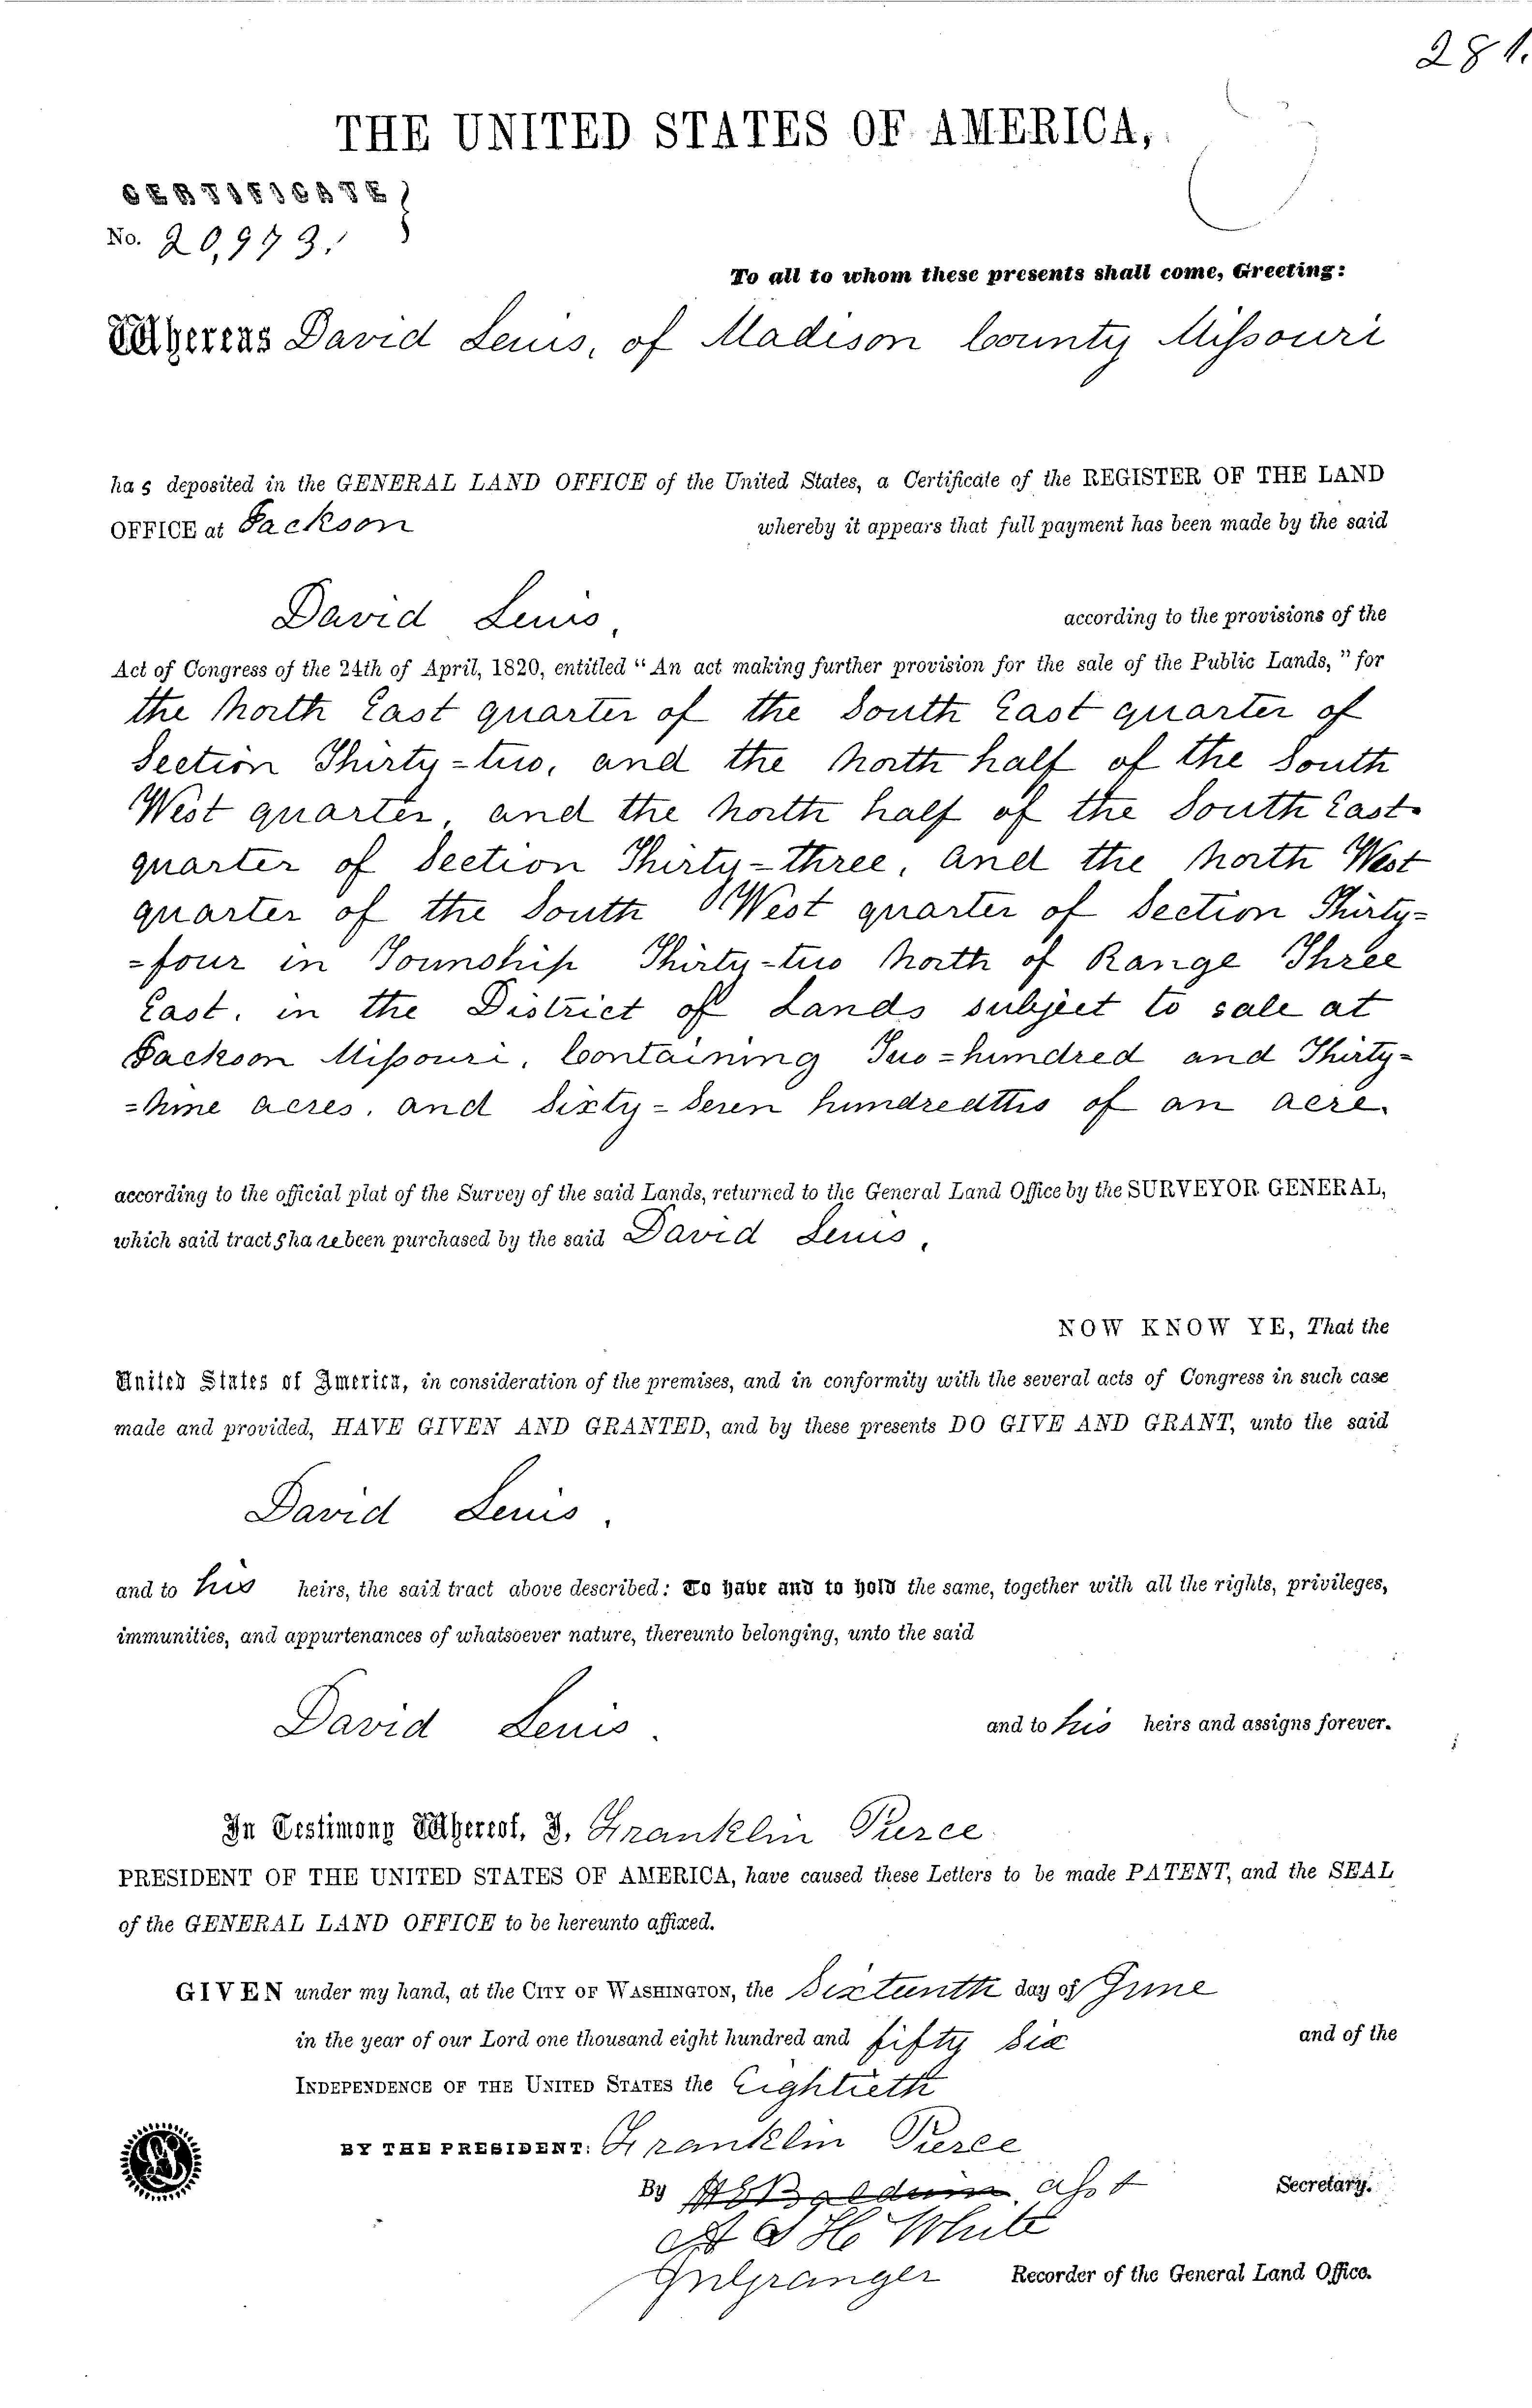 281.
THE UNITED STATES OF AMERICA,
CERTIFICATE
No. 20,973.
To all to whom these presents shall come, Greeting:
Whereas David Lewis, of Madison County Missouri
has deposited in the GENERAL LAND OFFICE of the United States, a Certificate of the REGISTER OF THE LAND
OFFICE at Jackson whereby it appears that full payment has been made by the said
David Lewis, according to the provisions of the
Act of Congress of the 24th of April, 1820, entitled "An act making further provision for the sale of the Public Lands," for
the North East quarter of the South East quarter of
Section Thirty=two, and the North half of the South
West quarter, and the North half of the South East
quarter of Section Thirty=three, and the North West
quarter of the South West quarter of Section Thirty=
=four in Township Thirty-two North of Range Three
East, in the District of Lands subject to sale at
Jackson Missouri, Containing Two=hundred and Thirty=
=Nine acres, and Sixty=Seven hundredths of an acre.
according to the official plat of the Survey of the said Lands, returned to the General Land Office by the SURVEYOR GENERAL,
which said tracts have been purchased by the said David Lewis,
NOW KNOW YE, That the
United States of America, in consideration of the premises, and in conformity with the several acts of Congress in such case
made and provided, HAVE GIVEN AND GRANTED, and by these presents DO GIVE AND GRANT, unto the said
David Lewis,
and to his heirs, the said tract above described: To have and to hold the same, together with all the rights, privileges,
immunities, and appurtenances of whatsoever nature, thereunto belonging, unto the said
David Lewis. and to his heirs and assigns forever.
In Testimony Whereof, I, Franklin Pierce
PRESIDENT OF THE UNITED STATES OF AMERICA, have caused these Letters to be made PATENT, and the SEAL
of the GENERAL LAND OFFICE to be hereunto affixed.
GIVEN under my hand, at the CITY OF WASHINGTON, the Sixteenth day of June
in the year of our Lord one thousand eight hundred and fifty six and of the
INDEPENDENCE OF THE UNITED STATES the Eightieth
BY THE PRESIDENT: Franklin Pierce
By Asst Secretary.
White
Granger Recorder of the General Land Office.